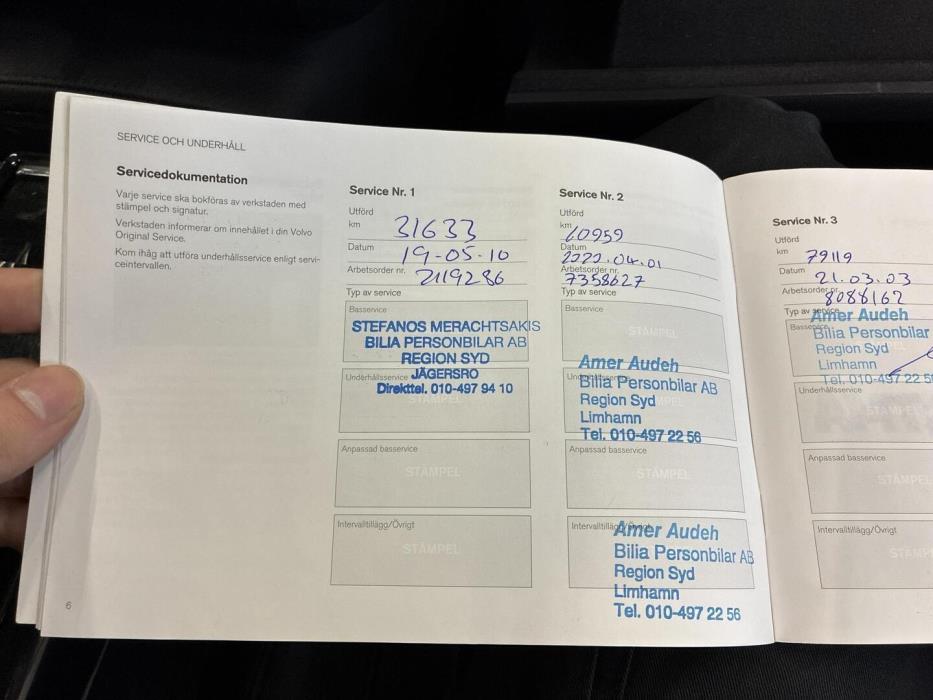 SERVICE OCH UNDERHÅLL
Servicedokumentation
Varje service ska bokföras av verkstaden med
stämpel och signatur.
Verkstaden informerar om innehållet i din Volvo
Original Service.
Kom ihåg att utföra underhållsservice enligt servi-
ceintervallen.
6
Service Nr. 1
Utförd
km 31633
Datum 19-05-10
Arbetsorder nr. 2119286
Typ av service
Basservice
STEFANOS MERACHTSAKIS
BILIA PERSONBILAR AB
REGION SYD
JÄGERSRO
Underhållsservice
Direkttel. 010-497 94 10
STÄMPEL
Anpassad basservice
STÄMPEL
Intervalltillägg/Övrigt
STÄMPEL
Service Nr. 2
Utförd
km 60959
Datum 2020.04.01
Arbetsorder nr. 7358627
Typ av service
Basservice
STÄMPEL
Amer Audeh
Underhållsservice
Bilia Personbilar AB
Region Syd
Limhamn
Tel. 010-497 22 56
Anpassad basservice
STÄMPEL
Intervalltillägg/Övrigt
Amer Audeh
Bilia Personbilar AB
Region Syd
Limhamn
Tel. 010-497 22 56
Service Nr. 3
Utförd
km 79119
Datum 21.03.03
Arbetsorder nr. 8088162
Typ av service
Amer Audeh
Basservice
Bilia Personbilar
Region Syd
Limhamn
Tel. 010-497 22 5
Underhållsservice
STÄMPEL
Anpassad basservice
STÄMPEL
Intervalltillägg/Övrigt
STÄMP